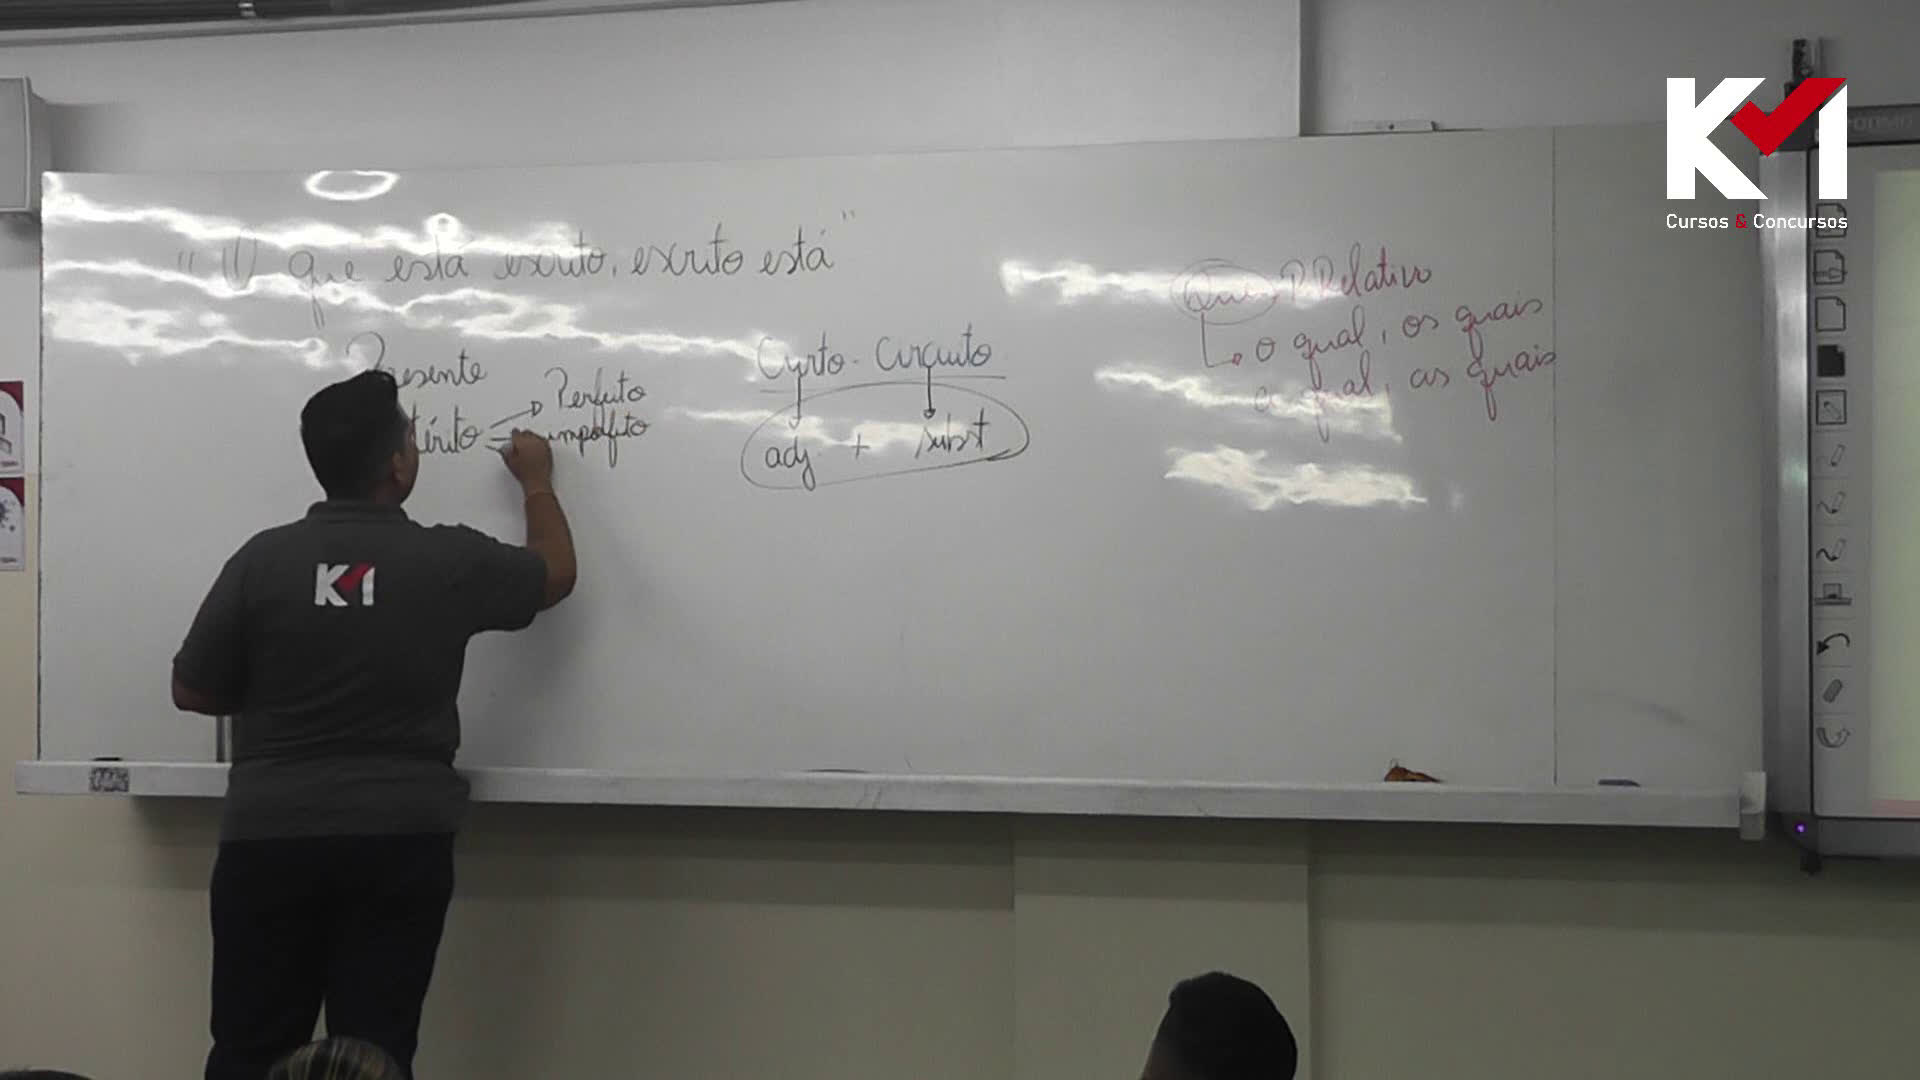 "O que está escrito, escrito está"
Presente
térito
Perfeito
imperfeito
Curto - Circuito
adj. + subst
Que P. Relativo
o qual, os quais
a qual, as quais
KM
Cursos & Concursos
KM